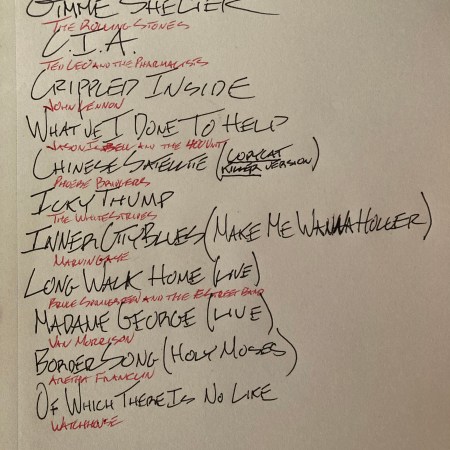 GIMME SHELTER
THE ROLLING STONES
C.I.A.
TED LEO AND THE PHARMACISTS
CRIPPLED INSIDE
JOHN LENNON
WHAT'VE I DONE TO HELP
JASON ISBELL AND THE 400 UNIT
CHINESE SATELLITE (COPYCAT KILLER VERSION)
PHOEBE BRIDGERS
ICKY THUMP
THE WHITE STRIPES
INNER CITY BLUES (MAKE ME WANNA HOLLER)
MARVIN GAYE
LONG WALK HOME (LIVE)
BRUCE SPRINGSTEEN AND THE E STREET BAND
MADAME GEORGE (LIVE)
VAN MORRISON
BORDER SONG (HOLY MOSES)
ARETHA FRANKLIN
OF WHICH THERE IS NO LIKE
WATCHHOUSE